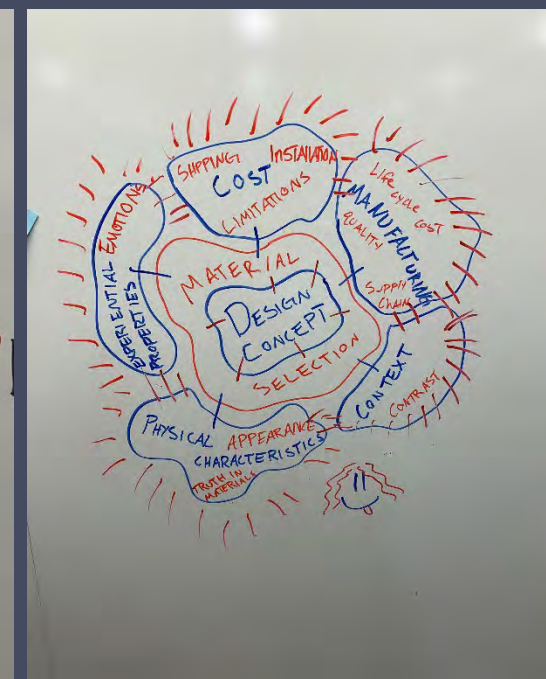 SHPPING INSTALLATION
COST
LIMITATIONS
Life
cycle cost
MANUFACTURING
QUALITY
SUPPLY
CHAIN
EMOTIONS
EXPERIENTIAL
PROPERTIES
MATERIAL
SELECTION
DESIGN
CONCEPT
CONTEXT
CONTRAST
PHYSICAL APPEARANCE
CHARACTERISTICS
TRUTH IN
MATERIALS